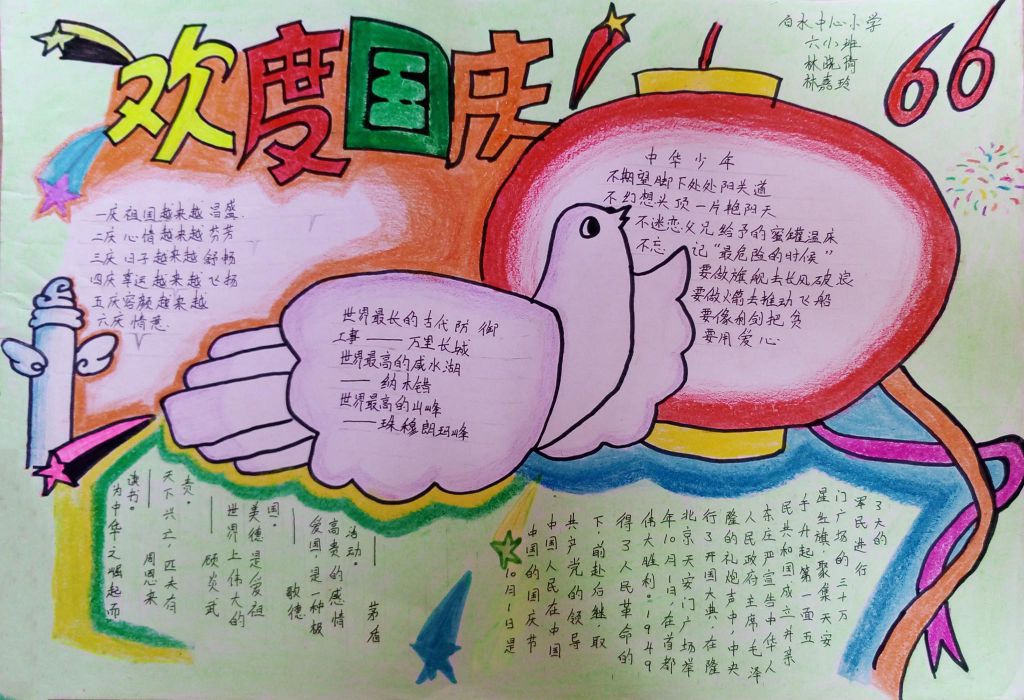 欢度国庆
66
白水中心小学
六小班
林晓倩
林嘉玲
一庆祖国越来越昌盛.
二庆心情越来越芬芳
三庆日子越来越舒畅
四庆幸运越来越飞扬
五庆容颜越来越
六庆情意.
中华少年
不期望脚下处处阳关道
不幻想头顶一片艳阳天
不迷恋父兄给予的蜜罐温床
不忘记"最危险的时候"
要做旗舰去长风破浪
要做火箭去推动飞船
要像利剑把负
要用爱心
世界最长的古代防御
工事——万里长城
世界最高的咸水湖
——纳木错
世界最高的山峰
——珠穆朗玛峰
为中华之崛起而
读书。
——周恩来
天下兴亡,匹夫有
责。
——顾炎武
世界上伟大的
美德是爱祖
国。
——歌德
爱国是一种极
高贵的感情
活动。
——茅盾
10月1日是
中国的国庆节
中国人民在中国
共产党的领导
下,前赴后继取
得了人民革命的
伟大胜利。1949
年10月1日,在首都
北京天安门广场举
行了开国大典,在隆
隆的礼炮声中,中央
人民政府主席毛泽
东庄严宣告中华人
民共和国成立并亲
手升起第一面五
星红旗.聚集天安
门广场的三十万
军民进行
了大的